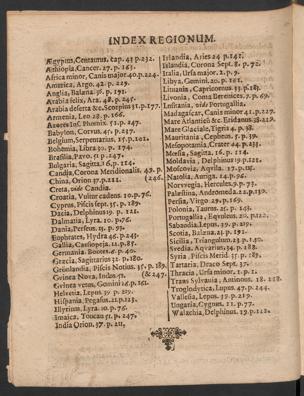 INDEX REGIONUM.
Ægyptus, Centaurus, cap. 43 p. 232.
Æthiopia, Cancer. 27. p. 163.
Africa minor, Canis major 40. p. 224.
America, Argo. 42. p. 229.
Anglia, Balæna. 36. p. 191.
Arabia felix, Ara. 48. p. 245.
Arabia deserta &c. Scorpius 31. p. 177.
Armenia, Leo 28. p. 166.
Azores Ins. Phœnix. 53. p. 247.
Babylon, Corvus. 45. p. 237.
Belgium, Serpentarius. 15. p. 102.
Bohemia, Libra 30. p. 174.
Brasilia, Pavo. 51. p. 247.
Bulgaria, Sagitta. 16. p. 114.
Candia, Corona Meridionalis. 49. p.
China, Orion 37. p. 211. (246.
Creta, vide Candia.
Croatia, Vultur cadens. 10. p. 76.
Cyprus, Piscis sept. 35. p. 189.
Dacia, Delphinus 19. p. 121.
Dalmatia, Lyra. 10. p. 76.
Dania, Perseus. 13. p. 93.
Euphrates, Hydra 46. p. 243.
Gallia, Cassiopeia. 12. p. 85.
Germania. Bootes. 6. p. 46.
Græcia, Sagittarius 32. p. 180.
Grönlandia, Piscis Notius. 35. p. 189.
Guinea Nova, Indus. 52. (& 247.
Guinea vetus, Gemini 26. p. 161.
Helvetia, Lepus 39. p. 219.
Hispania, Pegasus. 21. p. 123.
Illyrium, Lyra. 10. p. 76.
Jamaica, Toucan 55. p. 247.
India Orion. 37. p. 211.
Irlandia, Aries 24. p. 142.
Islandia, Corona Sept. 8. p. 72.
Italia, Ursa major. 2. p. 9.
Libya, Gemini. 26. p. 161.
Lituania, Capricornus. 33. p. 183.
Livonia, Coma Berenices. 7. p. 69.
Lusitania, vide Portugallia.
Madagascar, Canis minor 41. p. 227.
Mare Atlanticū &c. Eridanus. 38. p. 218.
Mare Glaciale, Tigris 4. p. 38.
Mauritania, Cepheus. 5. p. 39.
Mesopotamia, Crater 44. p. 233.
Moesia, Sagitta. 16. p. 114.
Moldavia, Delphinus 19. p. 121.
Moscovia, Aquila. 17. p. 115.
Natolia, Auriga. 14. p. 96.
Norvegia, Hercules. 9. p. 73.
Palæstina, Andromeda. 22. p. 130.
Persia, Virgo. 29. p. 169.
Polonia, Taurus. 25. p. 148.
Portugallia, Equuleus. 20. p. 122.
Sabaudia, Lepus. 39. p. 219.
Scotia, Balæna. 36. p. 191.
Sicilia, Triangulum. 23. p. 140.
Svedia, Aquarius. 34. p. 188.
Syria, Piscis Merid. 35. p. 189.
Tartaria, Draco Sept. 37.
Thracia, Ursa minor. 1. p. 1.
Transsylvania, Antinous. 18. p. 118.
Troglodytica, Lupus. 47. p. 244.
Vallesia, Lepus. 39. p. 219.
Ungaria, Cygnus. 11. p. 77.
Walachia, Delphinus. 19. p. 122.